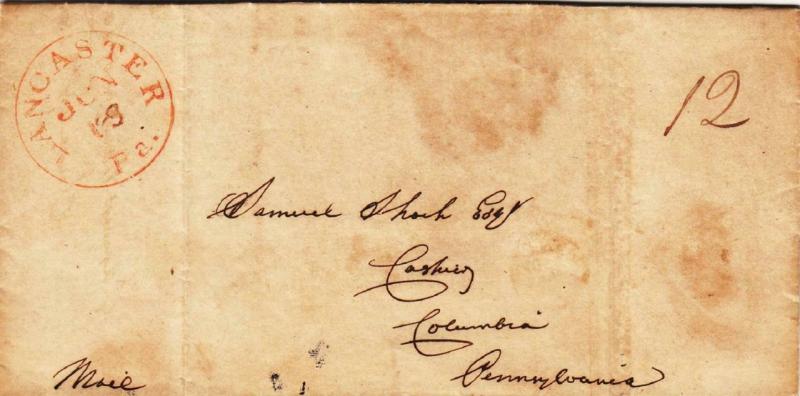 LANCASTER
Pa.
12
Samuel Shoch Esqr
Cashier
Columbia
Pennsylvania
Mail